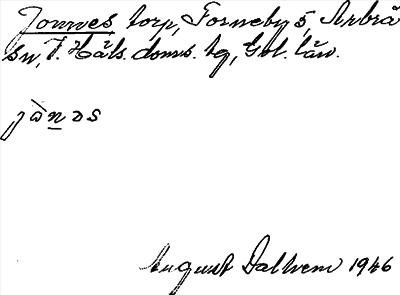 Jonnes torp, Forneby s, Arbrå
sn, V. Häls. doms. tg, Gvl. län.
jònəs
August Dalhem 1946